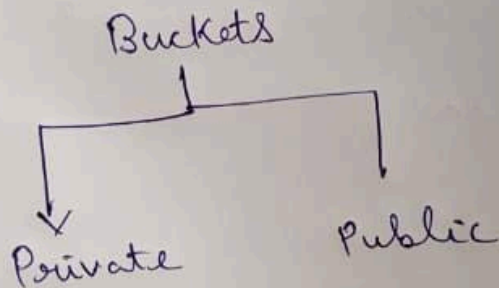 Buckets
Private
Public